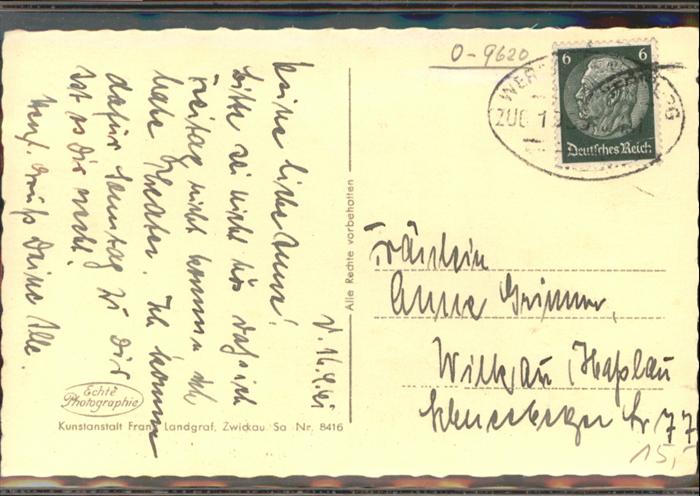 O-9620
6 6
Deutsches Reich
WER
ZUG 1
Meine liebe Anne!
bitte sei nicht bös daß ich
Freitag nicht komme ich
habe Theater. Ich komme
dafür Samstag zu Dir
ist es Dir recht?
Herzl. Grüße Deine
Alle Rechte vorbehalten
Fräulein
Anne Grimmer,
Wilkau, Haßlau
Schneeberger Str 77
15,-
Echte
Photographie
Kunstanstalt Franz Landgraf, Zwickau Sa Nr. 8416